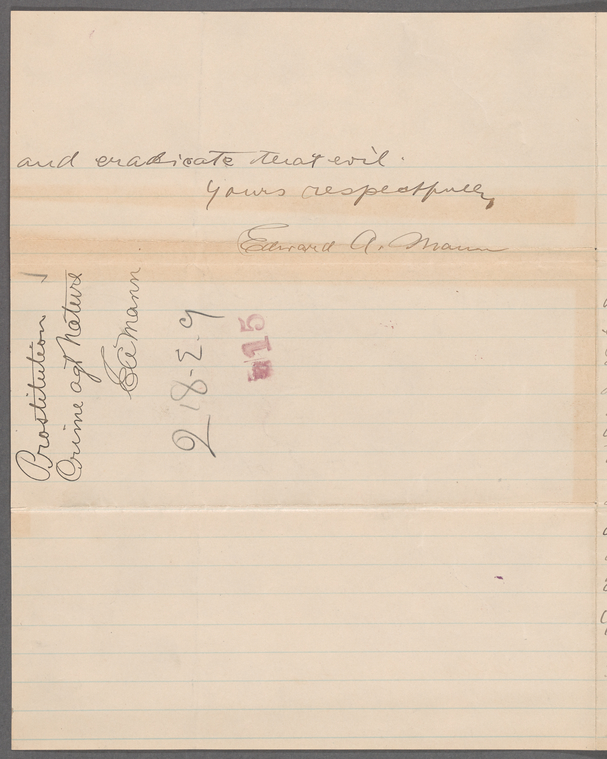 and eradicate that evil.
Yours respectfully,
Edward A. Mann
Prostitution
Crime agt Nature
E A Mann
2 18-E-9
15